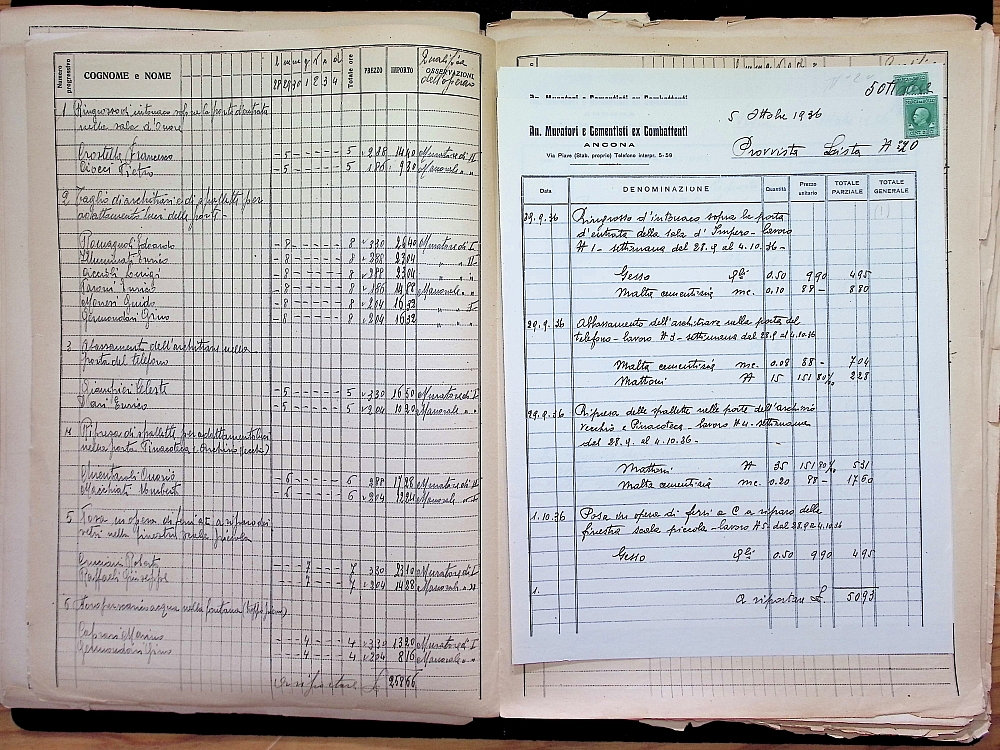 Numero progressivo
COGNOME e NOME
l m m g v s d
28 29 30 1 2 3 4
Totale ore
PREZZO
IMPORTO
Qualifica
OSSERVAZIONI
dell'operaio
1 Ringrosso di intonaco sopra la porta d'entrata
nella sala d'Onore
Crostella Francesco - 5 - - - - - 5 2,88 14 40 Muratore di II
Ciocci Pietro - 5 - - - - - 5 1,86 9 30 Manovale
2 Taglio di architravi e di spallette per
adattamento luci delle porte -
Romagnoli Edoardo - 8 - - - - - 8 3,30 26 40 Muratore di I
Enrico - 8 - - - - - 8 2,88 23 04 " " II
Luigi - 8 - - - - - 8 2,88 23 04 " " "
Enrico - 8 - - - - - 8 1,86 14 88 Manovale
Guido - 8 - - - - - 8 2,04 16 32 " " I
Germondari Gino - 8 - - - - - 8 2,04 16 32 " " "
3 Abassamento dell'architrave nella
porta del telefono
Celeste - 5 - - - - - 5 3,30 16 50 Muratore di I
Enrico - 5 - - - - - 5 2,04 10 20 Manovale " "
4 Ripresa di spallette per adattamento luci
nella porta Pinacoteca e Archivio vecchio
- 6 - - - - - 6 2,88 17 28 Muratore di II
Umberto - 6 - - - - - 6 2,04 12 24 Manovale
5 Posa in opera di ferri a C a riparo dei
vetri nella finestra scala piccola
Roberto 7 7 3,30 23 10 Muratore di I
Raffaeli Giuseppe 7 7 2,04 14 28 Manovale
6 acqua nella fontana
Caprari Marino - - - 4 - - - 4 3,30 13 20 Muratore di I
Germondari Gino - - - 4 - - - 4 2,04 8 16 Manovale " "
a riportare L. 258 66
An. Muratori e Cementisti ex Combattenti
5 Ottobre 1936
An. Muratori e Cementisti ex Combattenti
ANCONA
Via Piave (Stab. proprio) Telefono interpr. 5-59
Provvista Lista N 20
Data
DENOMINAZIONE
Quantità
Prezzo unitario
TOTALE PARZIALE
TOTALE GENERALE
29.9.36 Ringrosso d'intonaco sopra la porta
d'entrata della sala d'Impero - lavoro
N 1 - settimana dal 28.9 al 4.10.36 -
Gesso Qli 0.50 9,90 4 95
Malta cementizia mc. 0,10 88 - 8 80
29.9.36 Abbassamento dell'architrave nella porta del
telefono - lavoro N 3 - settimana dal 28.9 al 4.10.36
Malta cementizia mc. 0.08 88 - 7 04
Mattoni N 15 151,80 ‰ 2 28
29.9.36 Ripresa delle spallette nelle porte dell'archivio
vecchio e Pinacoteca - lavoro N 4 - settimana
dal 28.9. al 4.10.36 -
Mattoni N 35 151,80 ‰ 5 31
Malta cementizia mc. 0.20 88 - 17 60
1.10.36 Posa in opera di ferri a C a riparo della
finestra scala piccola - lavoro N 5 - dal 28.9 al 4.10.36
Gesso Qli 0.50 9,90 4 95
1.
a riportare L. 50 93